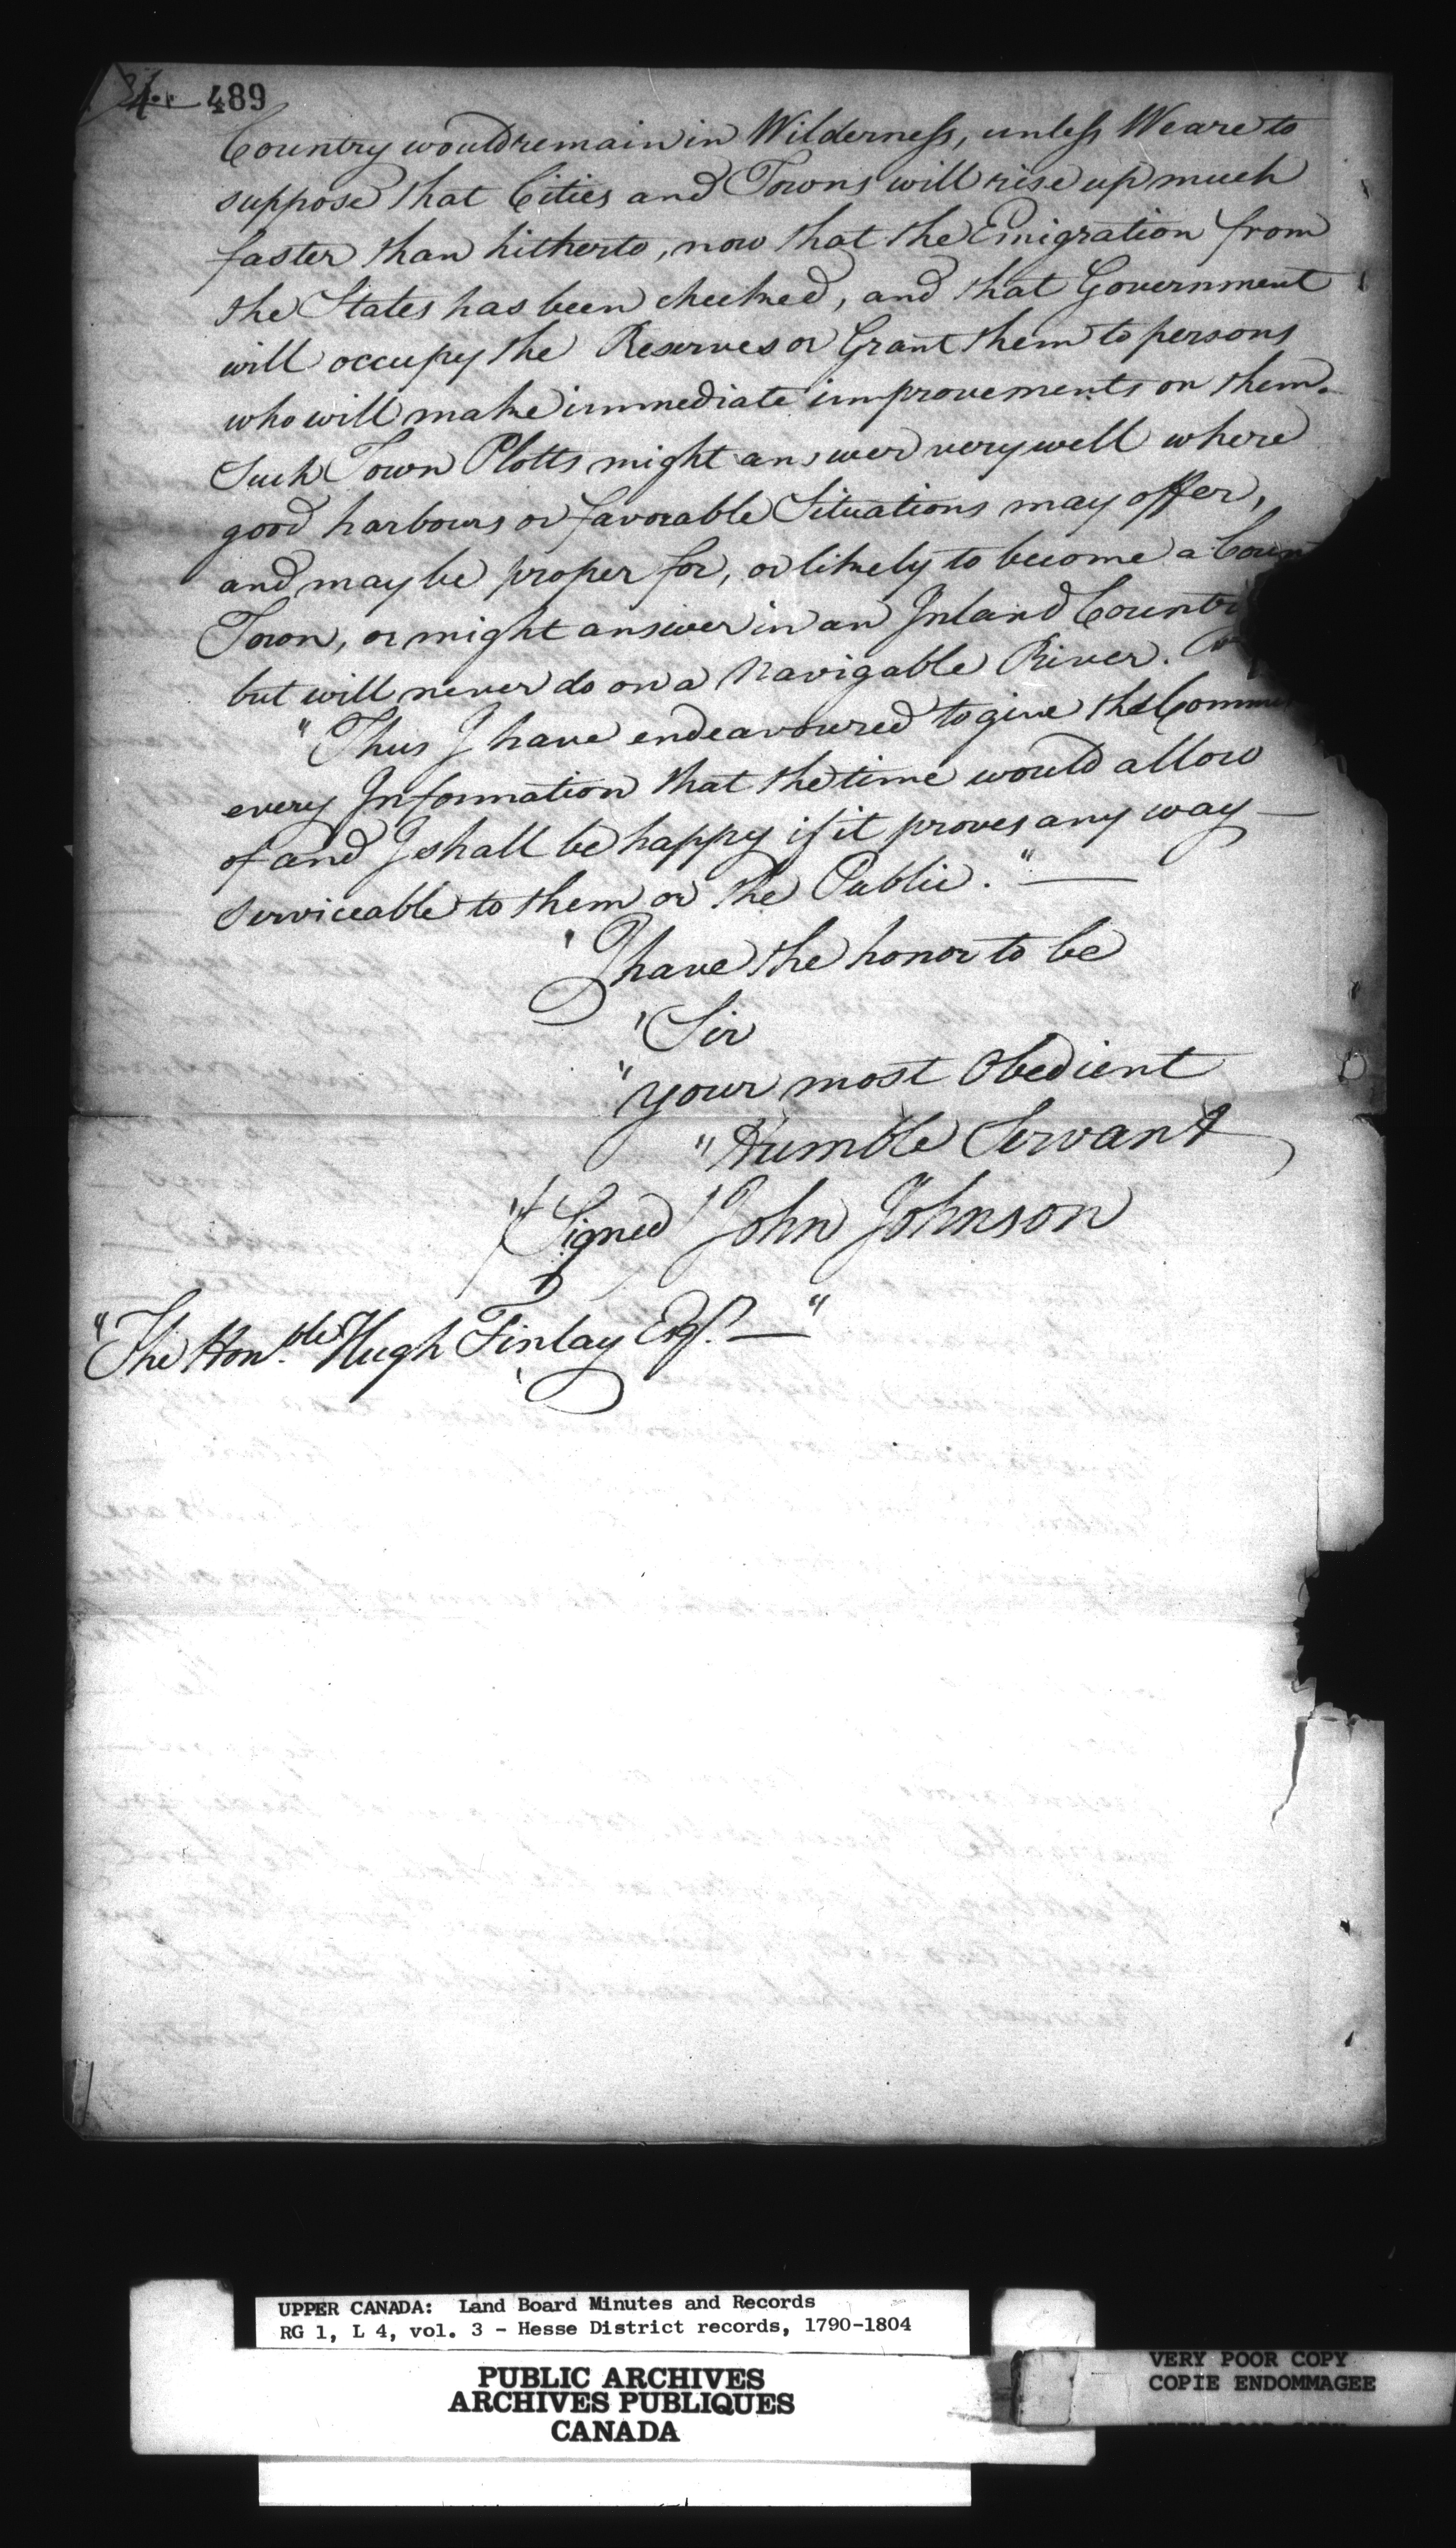 489
Country would remain in Wilderness, unless We are to
suppose that Cities and Towns will rise up much
faster than hitherto, now that the Emigration from
the States has been checked, and that Government
will occupy the Reserves or Grant them to persons
who will make immediate improvements on them.
Such Town Plotts might answer very well where
good harbours or favorable Situations may offer,
and may be proper for, or likely to become a Coun
Town, or might answer in an Inland Countr
but will never do on a Navigable River.
"Thus I have endeavoured to give the Commi
every Information that the time would allow
of and I shall be happy if it proves any way —
serviceable to them or the Public." —
"I have the honor to be
"Sir
"your most Obedient
"Humble Servant
"(Signed) John Johnson
"The Hon.ble Hugh Finlay Esqr. — "
UPPER CANADA: Land Board Minutes and Records
RG 1, L 4, vol. 3 - Hesse District records, 1790-1804
PUBLIC ARCHIVES
ARCHIVES PUBLIQUES
CANADA
VERY POOR COPY
COPIE ENDOMMAGEE